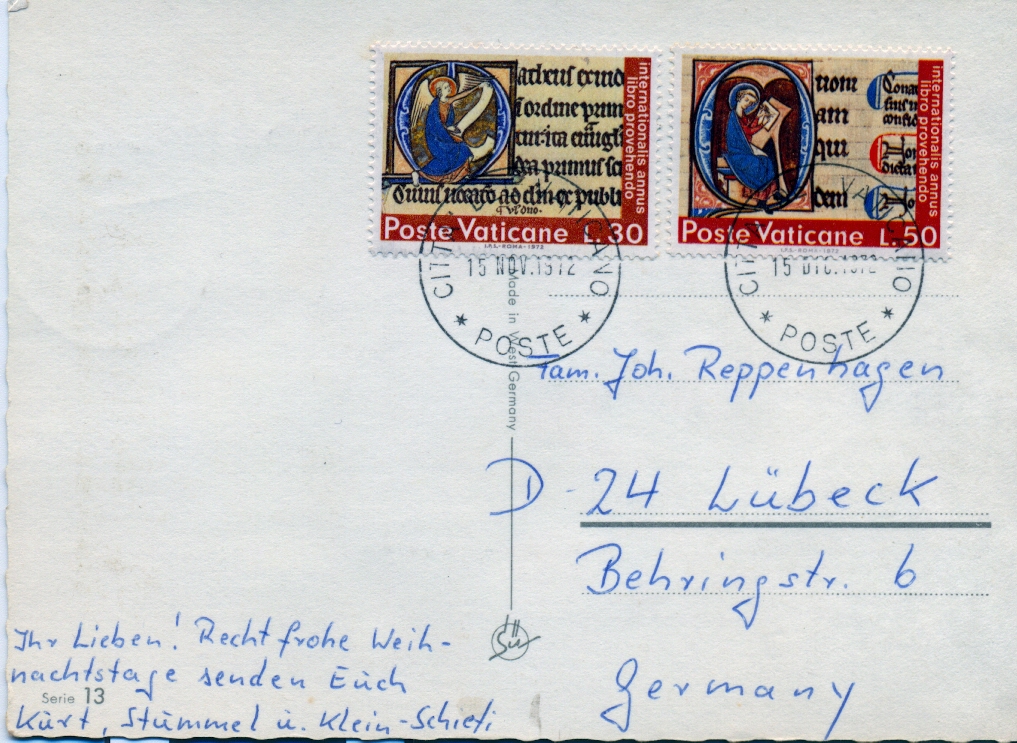 atheus ex
ordine
primus
internationalis annus
libro provehendo
Poste Vaticane L.30
I.P.S.-ROMA-1972
uiom
am
qui
dem
internationalis annus
libro provehendo
Poste Vaticane L.50
I.P.S.-ROMA-1972
CITTA VATICANO
15 NOV.1972
* POSTE *
CITTA VATICANO
15 DIC.1972
* POSTE *
Made in West-Germany
Fam. Joh. Reppenhagen
D-24 Lübeck
Behringstr. 6
Germany
Ihr Lieben! Recht frohe Weih-
nachtstage senden Euch
Serie 13
Kurt, Stummel u. Klein-Schieti